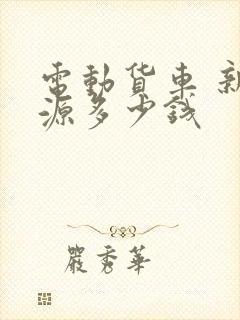 電動货車 新
源多少钱
嚴秀華